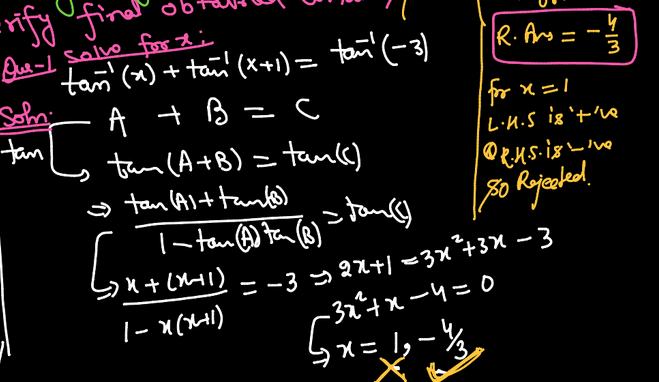 rify final obtained
Que-1 solve for x:
tan⁻¹(x) + tan⁻¹(x+1) = tan⁻¹(-3)
Soln:
A + B = C
tan
tan(A+B) = tan(C)
⇒ tan(A) + tan(B) / 1 - tan(A) tan(B) = tan(C)
x + (x+1) / 1 - x(x+1) = -3 ⇒ 2x+1 = 3x² + 3x - 3
3x² + x - 4 = 0
x = 1, -4/3
R. Ans = -4/3
for x = 1
L.H.S is +'ve
R.H.S. is -'ve
so Rejected.